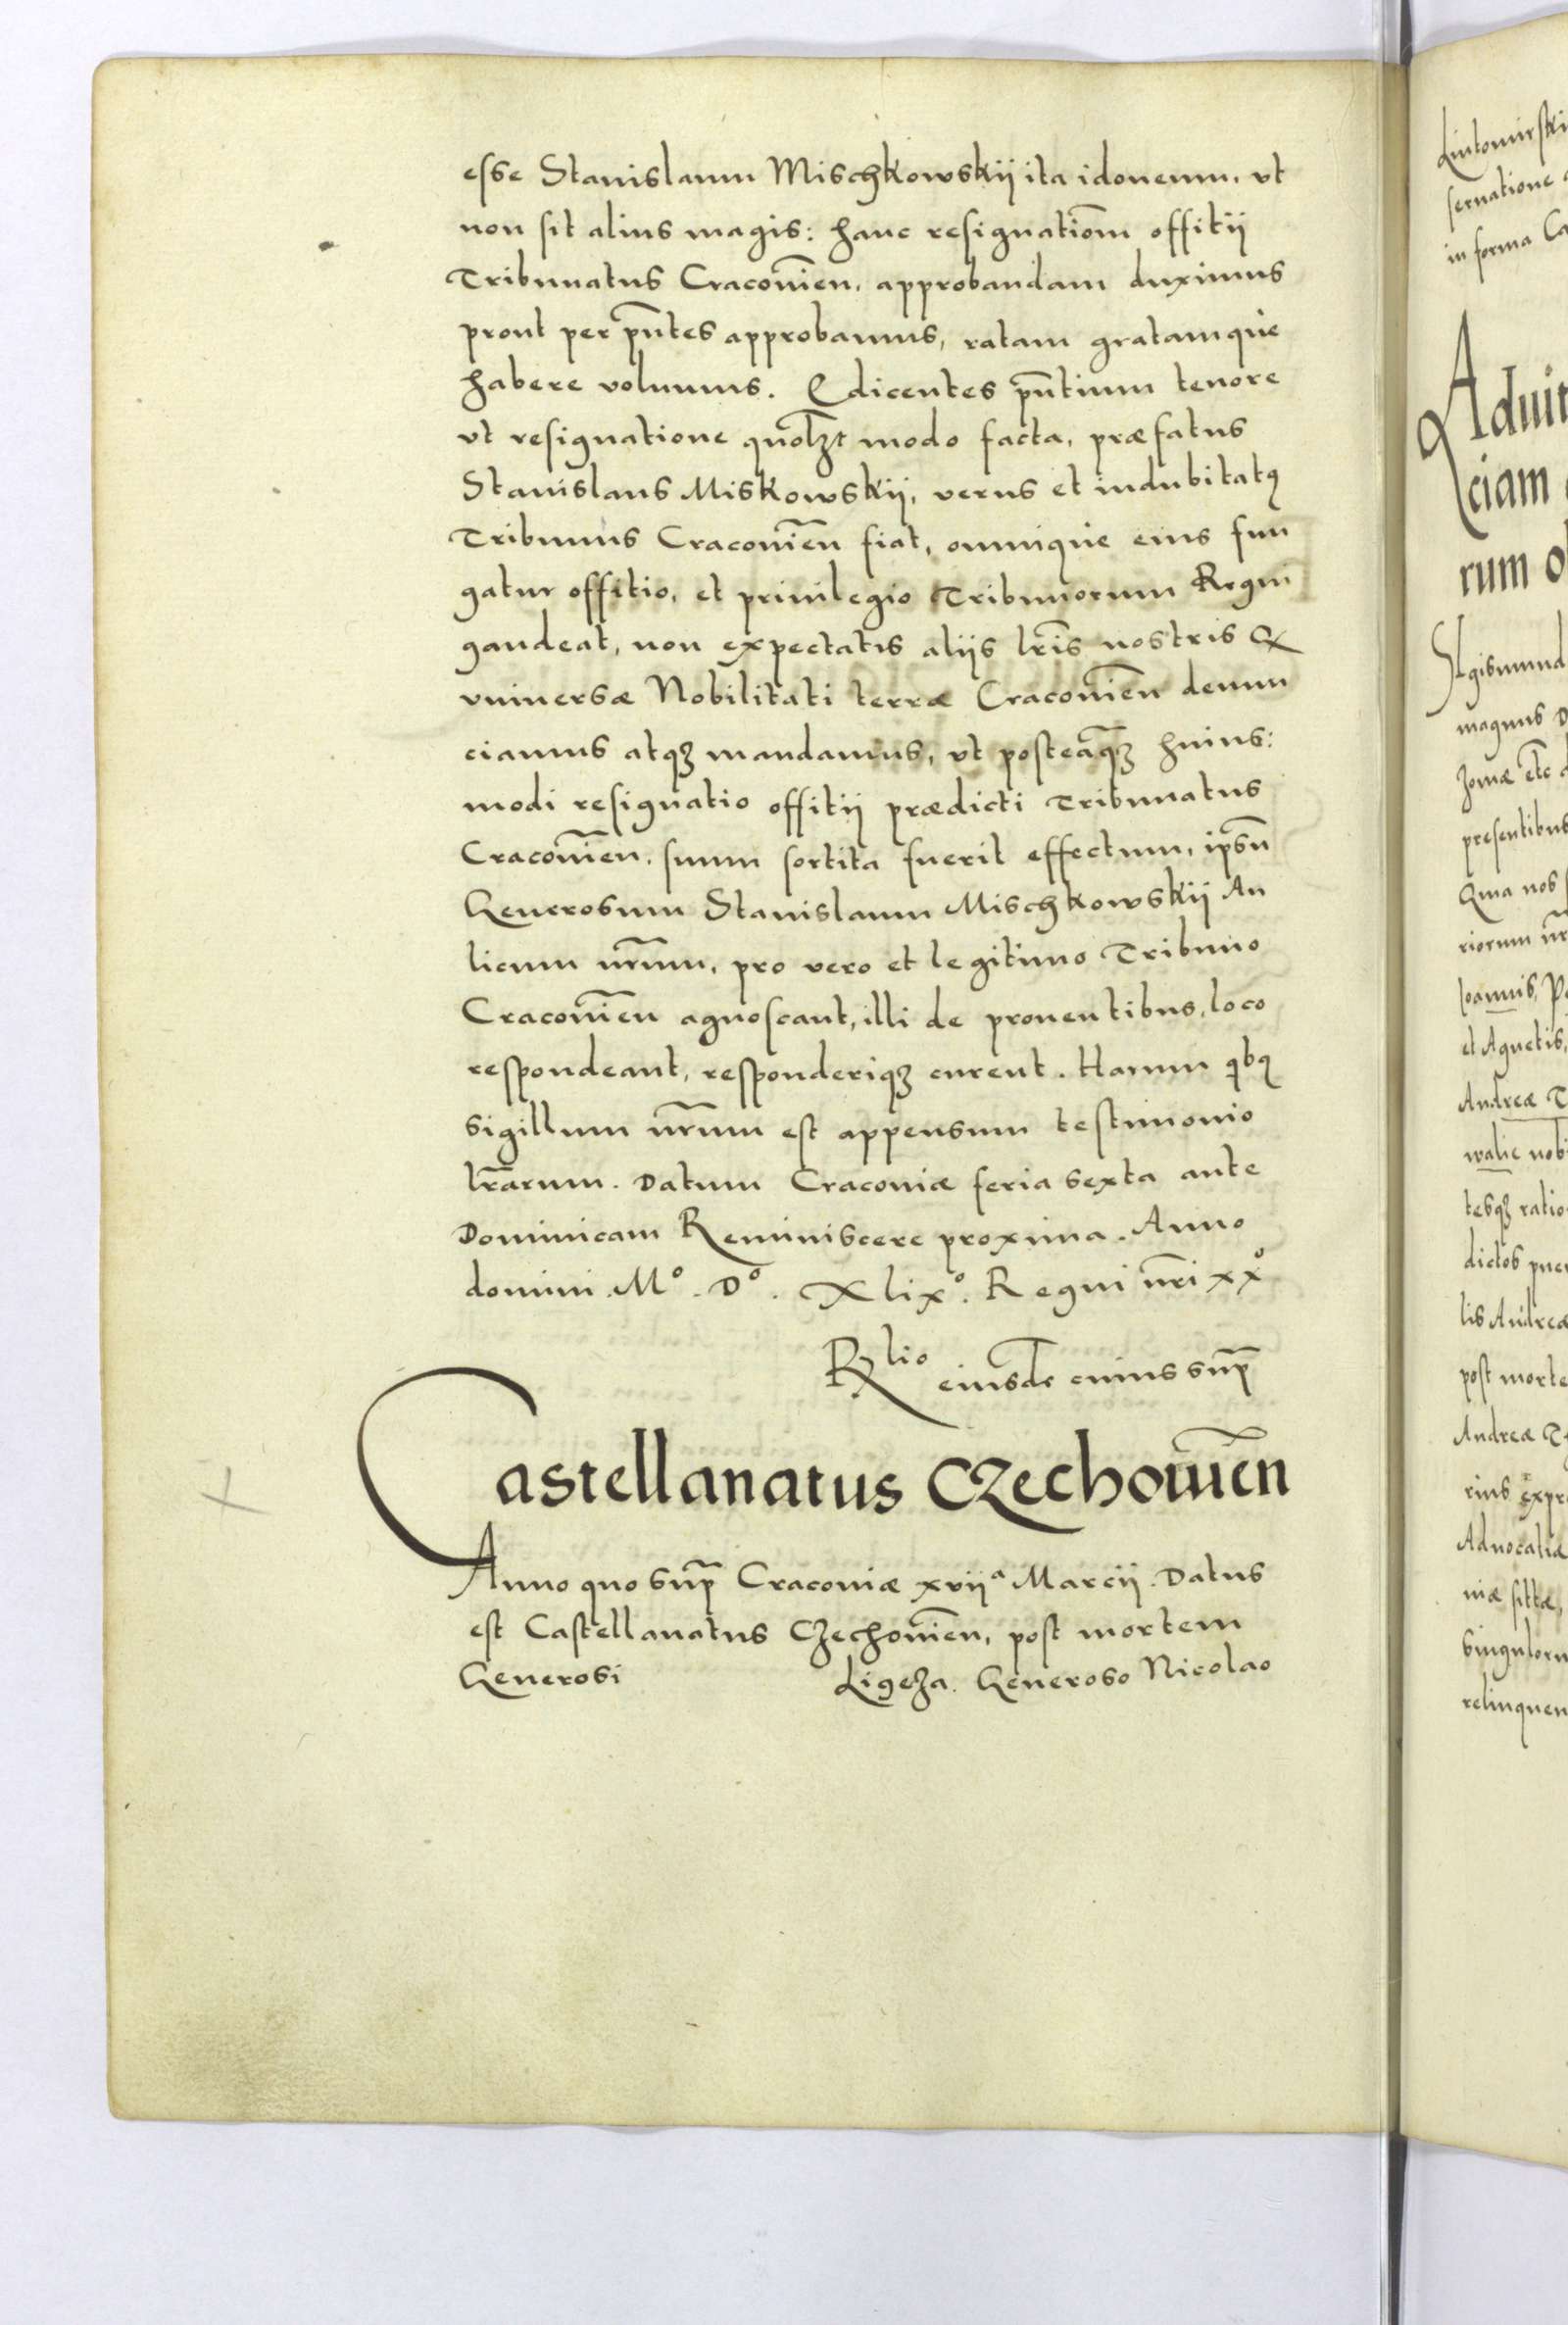 esse Stanislaum Mischkowskij ita idoneum, vt
non sit alius magis: hanc resignatiōm offitii
Tribunatus Cracovīen, approbandam duximus
prout per pn̄tes approbamus, ratam gratamque
habere volumus. Edicentes pn̄tium tenore
vt resignatione modo facta, præfatus
Stanislaus Miskowskij, verus et indubitatꝰ
Tribunus Craconīen fiat, omnique eius fun
gatur offitio, et priuilegio Tribunorum Regni
gaudeat, non expectatis alijs lr̄is nostris &
vniuersæ Nobilitati terræ Craconīen denun
ciamus atqꝫ mandamus, vt posteaq̄ꝫ huius:
modi resignatio offitii prædicti Tribunatus
Craconīen. suum sortita fuerit effectum, ipsū
Generosum Stanislaum Mischkowskij Au
licum nr̄um, pro vero et legitimo Tribuno
Craconīen agnoscant, illi de prouentibus, loco
respondeant, responderiqꝫ curent. Harum qibꝰ
sigillum nr̄um est appensum testimonio
lr̄arum. Datum Craconiæ feria sexta ante
Dominicam Reminiscere proxima. Anno
domini. Mº. Dº. Xlixº. Regni nr̄i xxº
Rlio eiusdē cuius sup̄
Castellanatus Czechouīen
Anno quo sup̄ Craconiæ xviiª Marcii. Datus
est Castellanatus Czechouīen, post mortem
Generosi Ligeza. Generoso Nicolao
Lutomirski
seruatione
in forma Ca
Aduit
ciam
rum o
SIgismund
magnus D
zouiæ etc̄
presentibus
Quia nos
riorum nr̄
Joannis, P
et Agnetis,
Andreæ T
walic nob
tesqꝫ ratio
dictos puer
lis Andreæ
post morte
Andreæ T
rius expr
Aduocatiæ
niæ sittæ,
singuloru
relinquen